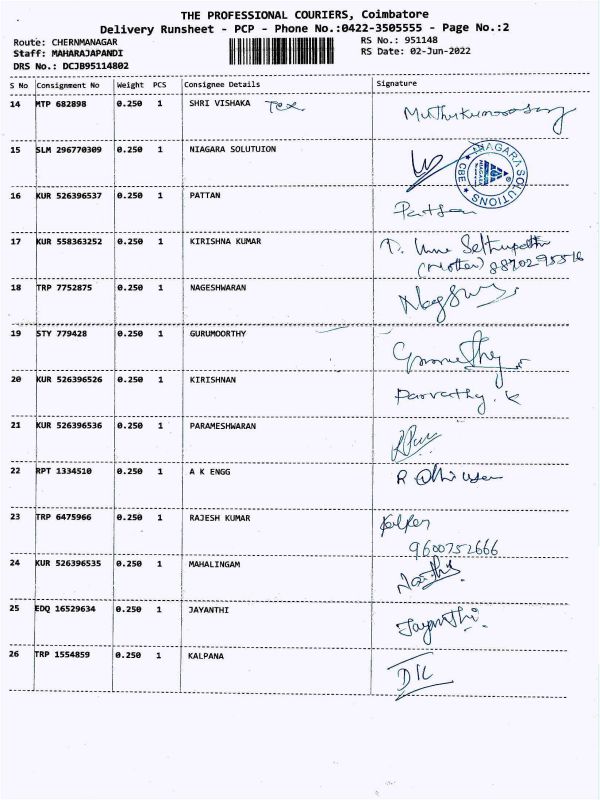 THE PROFESSIONAL COURIERS, Coimbatore
Delivery Runsheet - PCP - Phone No.:0422-3505555 - Page No.:2
Route: CHERNMANAGAR RS No.: 951148
Staff: MAHARAJAPANDI RS Date: 02-Jun-2022
DRS No.: DCJB95114802
S No Consignment No Weight PCS Consignee Details Signature
14 MTP 682898 0.250 1 SHRI VISHAKA Tex
15 SLM 296770309 0.250 1 NIAGARA SOLUTUION NIAGARA SOLUTIONS ★ CBE ★
16 KUR 526396537 0.250 1 PATTAN
17 KUR 558363252 0.250 1 KIRISHNA KUMAR
(Mother) 8870295516
18 TRP 7752875 0.250 1 NAGESHWARAN
19 STY 779428 0.250 1 GURUMOORTHY
20 KUR 526396526 0.250 1 KIRISHNAN Parvathy. K
21 KUR 526396536 0.250 1 PARAMESHWARAN
22 RPT 1334510 0.250 1 A K ENGG
23 TRP 6475966 0.250 1 RAJESH KUMAR
9600752666
24 KUR 526396535 0.250 1 MAHALINGAM
25 EDQ 16529634 0.250 1 JAYANTHI Jayanthi.
26 TRP 1554859 0.250 1 KALPANA